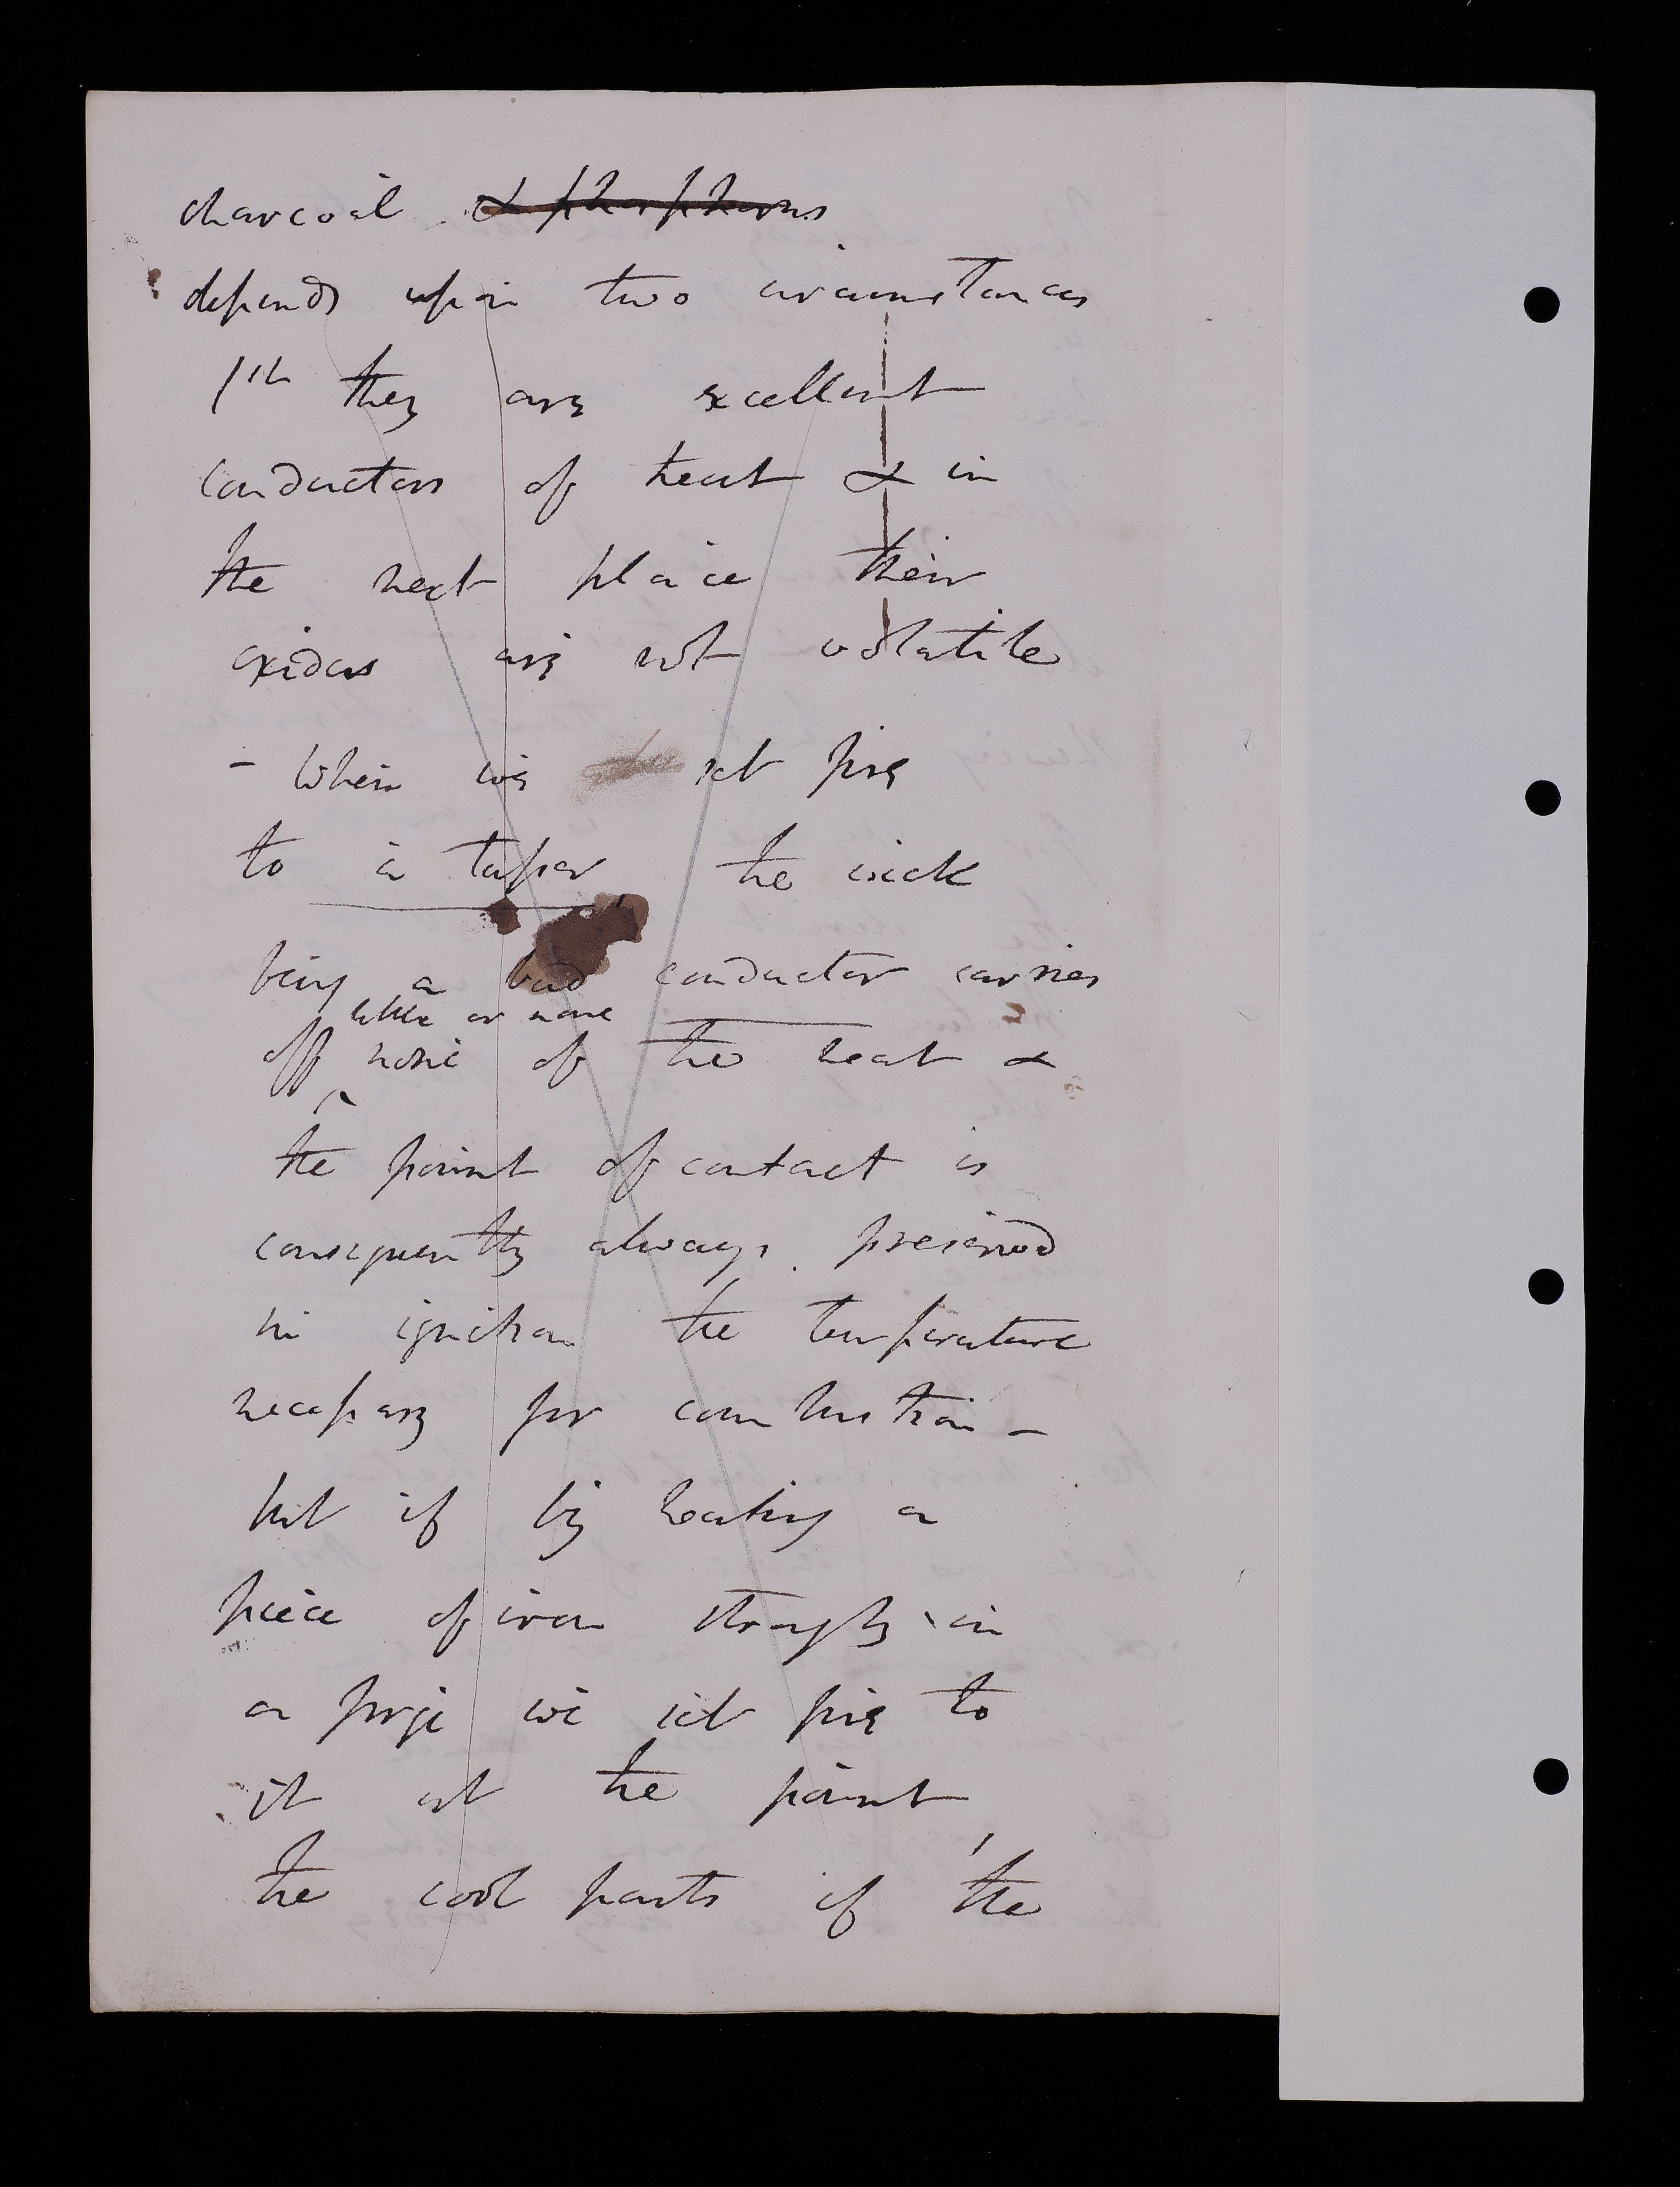 charcoal & phosphorus
depends upon two circumstances
1st they are excellent
conductors of heat & in
the next place their
oxides are not volatile
- When we set fire
to a taper the wick
being a bad conductor carries
little or none
off none of the heat &
the point of contact is
consequently always preserved
in ignition the temperature
necessary for combustion -
but if by heating a
piece of iron strongly in
a forge we set fire to
it at the point
the cool parts of the